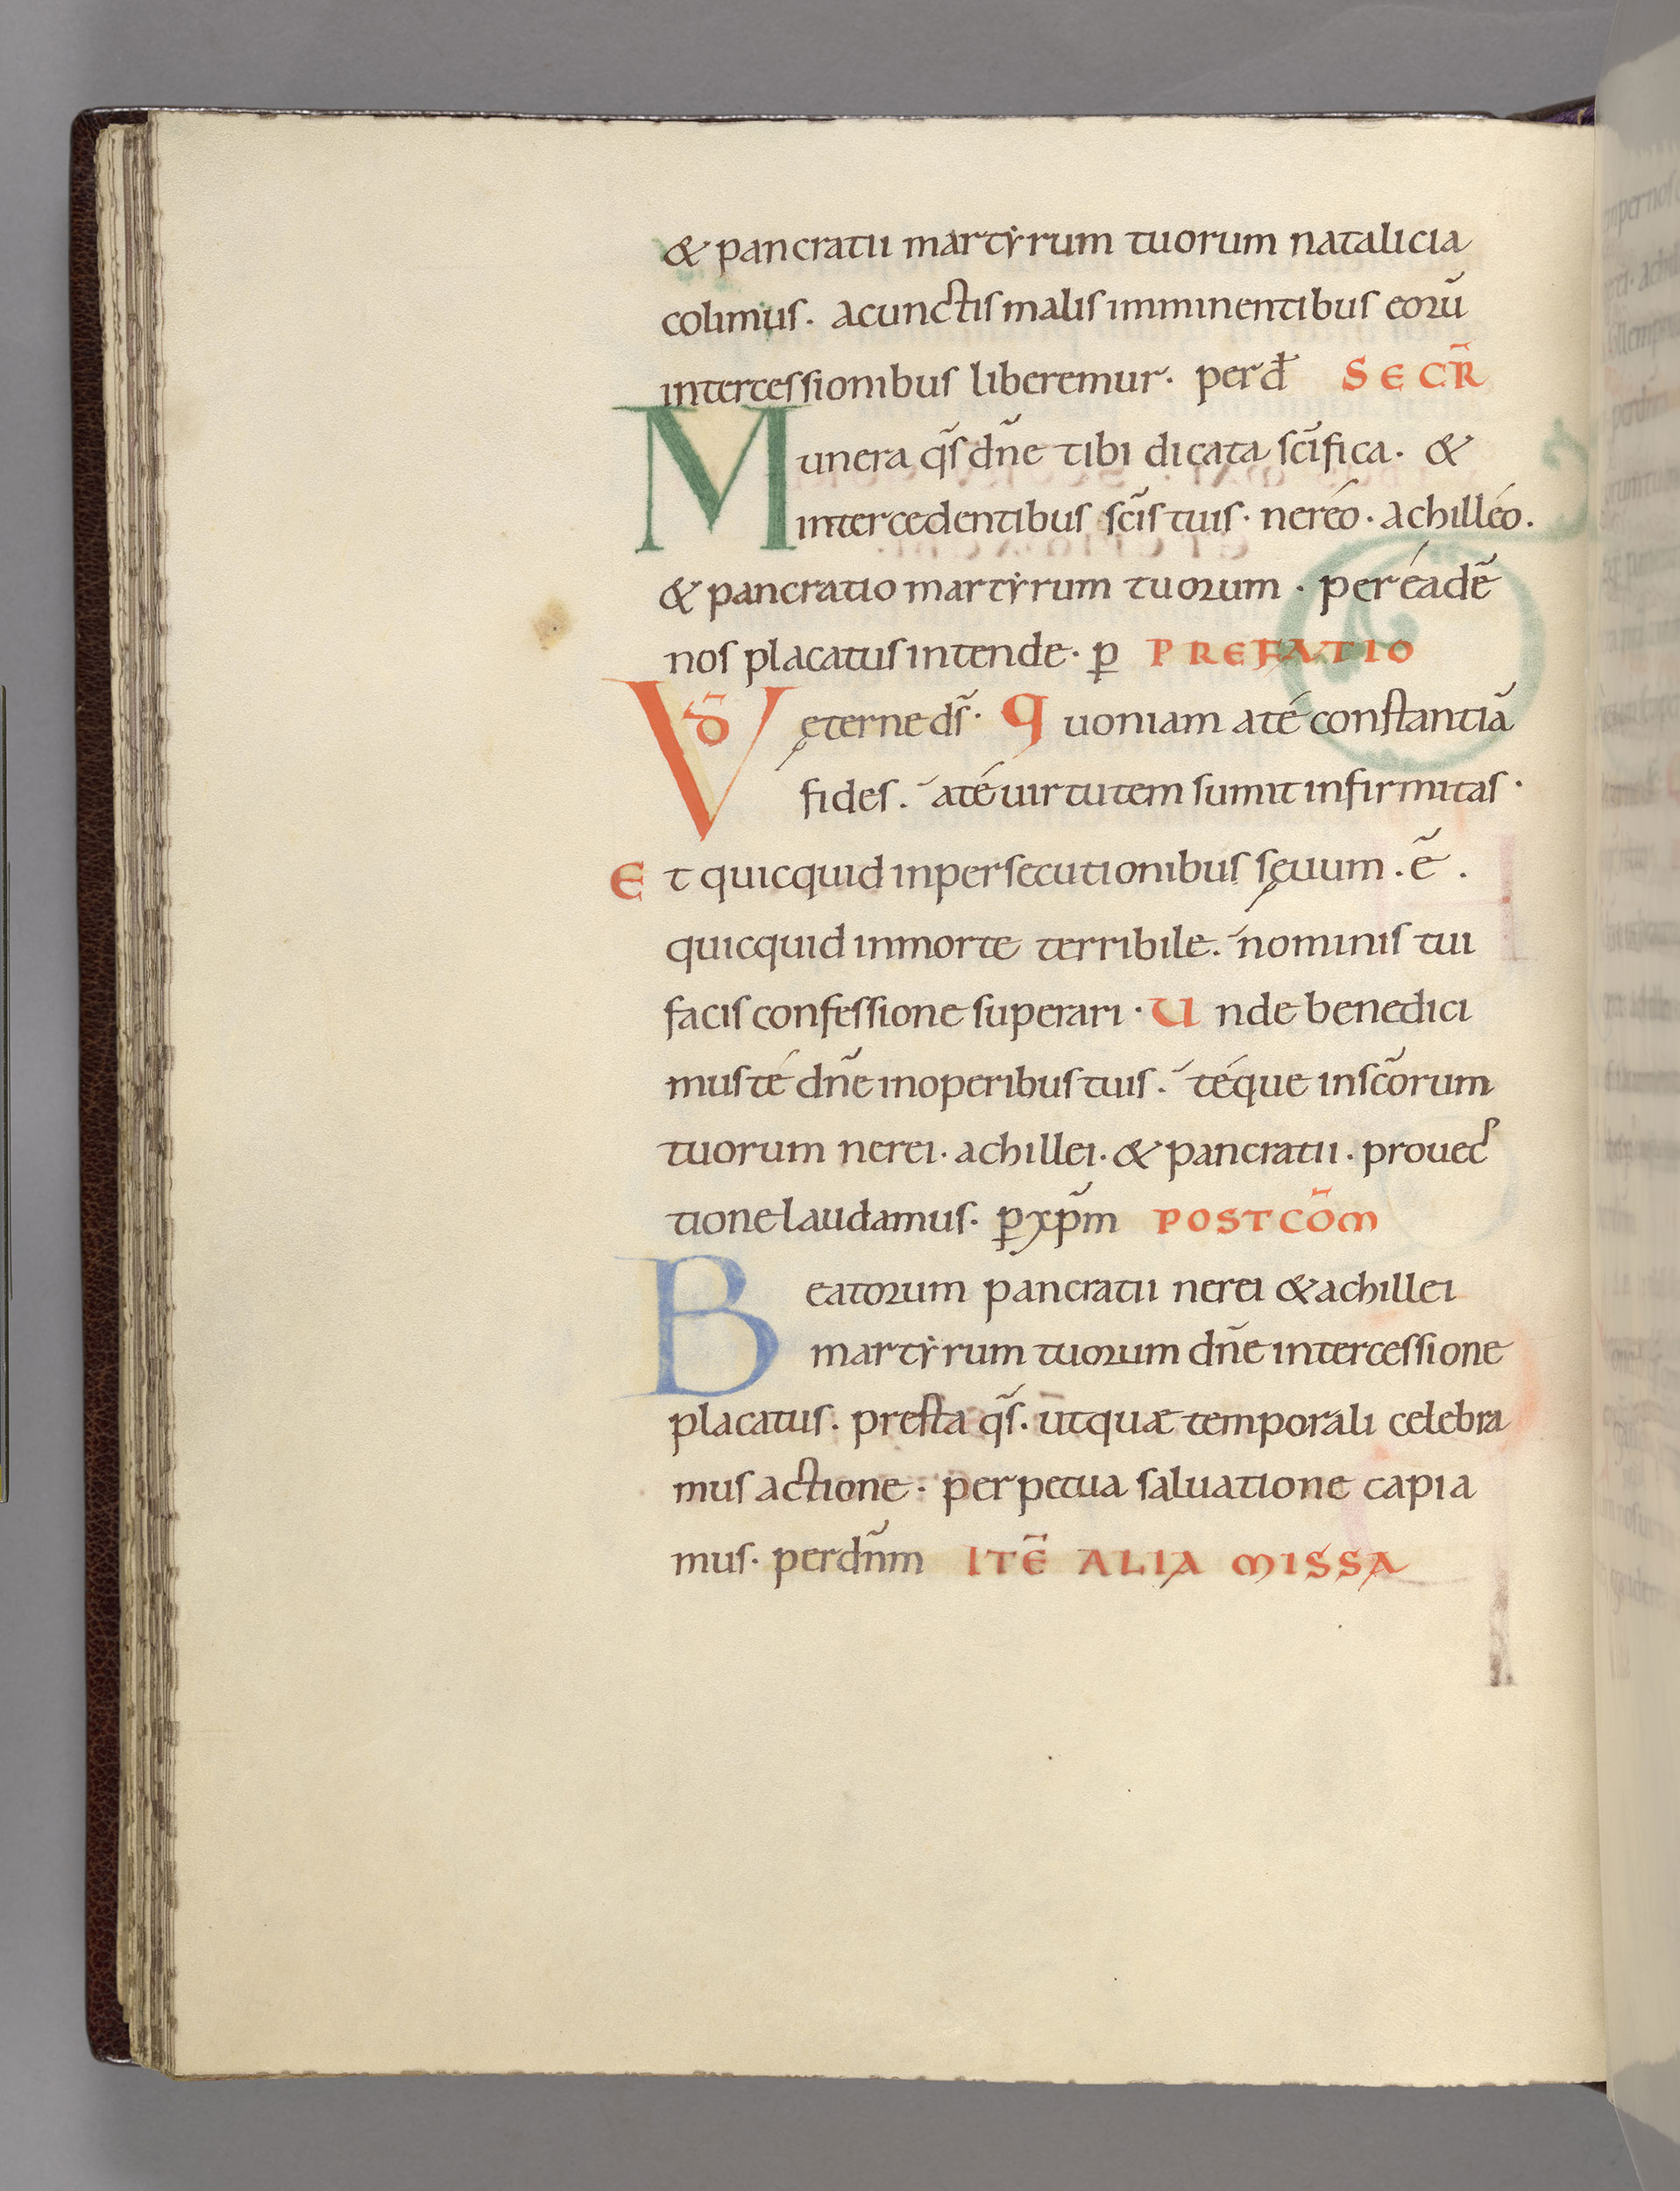 & pancratii martẏrum tuorum natalicia
colimus. acunctis malis imminentibus eorū
intercessionibus liberemur. perd̄ SECR̄
Munera q̄s dn̄e tibi dicata sc̄ifica. &
intercedentibus sc̄is tuis. neréo. achilléo.
& pancratio martẏrum tuorum. per éadē
nos placatus intende. ꝑ PREFATIO
VD̄ ęterne ds̄. Quoniam até constantiā
fides. até uirtutem sumit infirmitas.
Et quicquid inpersecutionibus sęuum. ē.
quicquid inmorte terribile. nominis tui
facis confessione superari. Unde benedici
mus té dn̄e inoperibus tuis. téque insc̄orum
tuorum nerei. achillei. & pancratii. prouec
tione laudamus. ꝑ xp̄m POSTCOM̄
Beatorum pancratii nerei & achillei
martẏrum tuorum dn̄e intercessione
placatus. presta q̄s. utquæ temporali celebra
mus actione. perpetua saluatione capia
mus. perdn̄m ITĒ ALIA MISSA